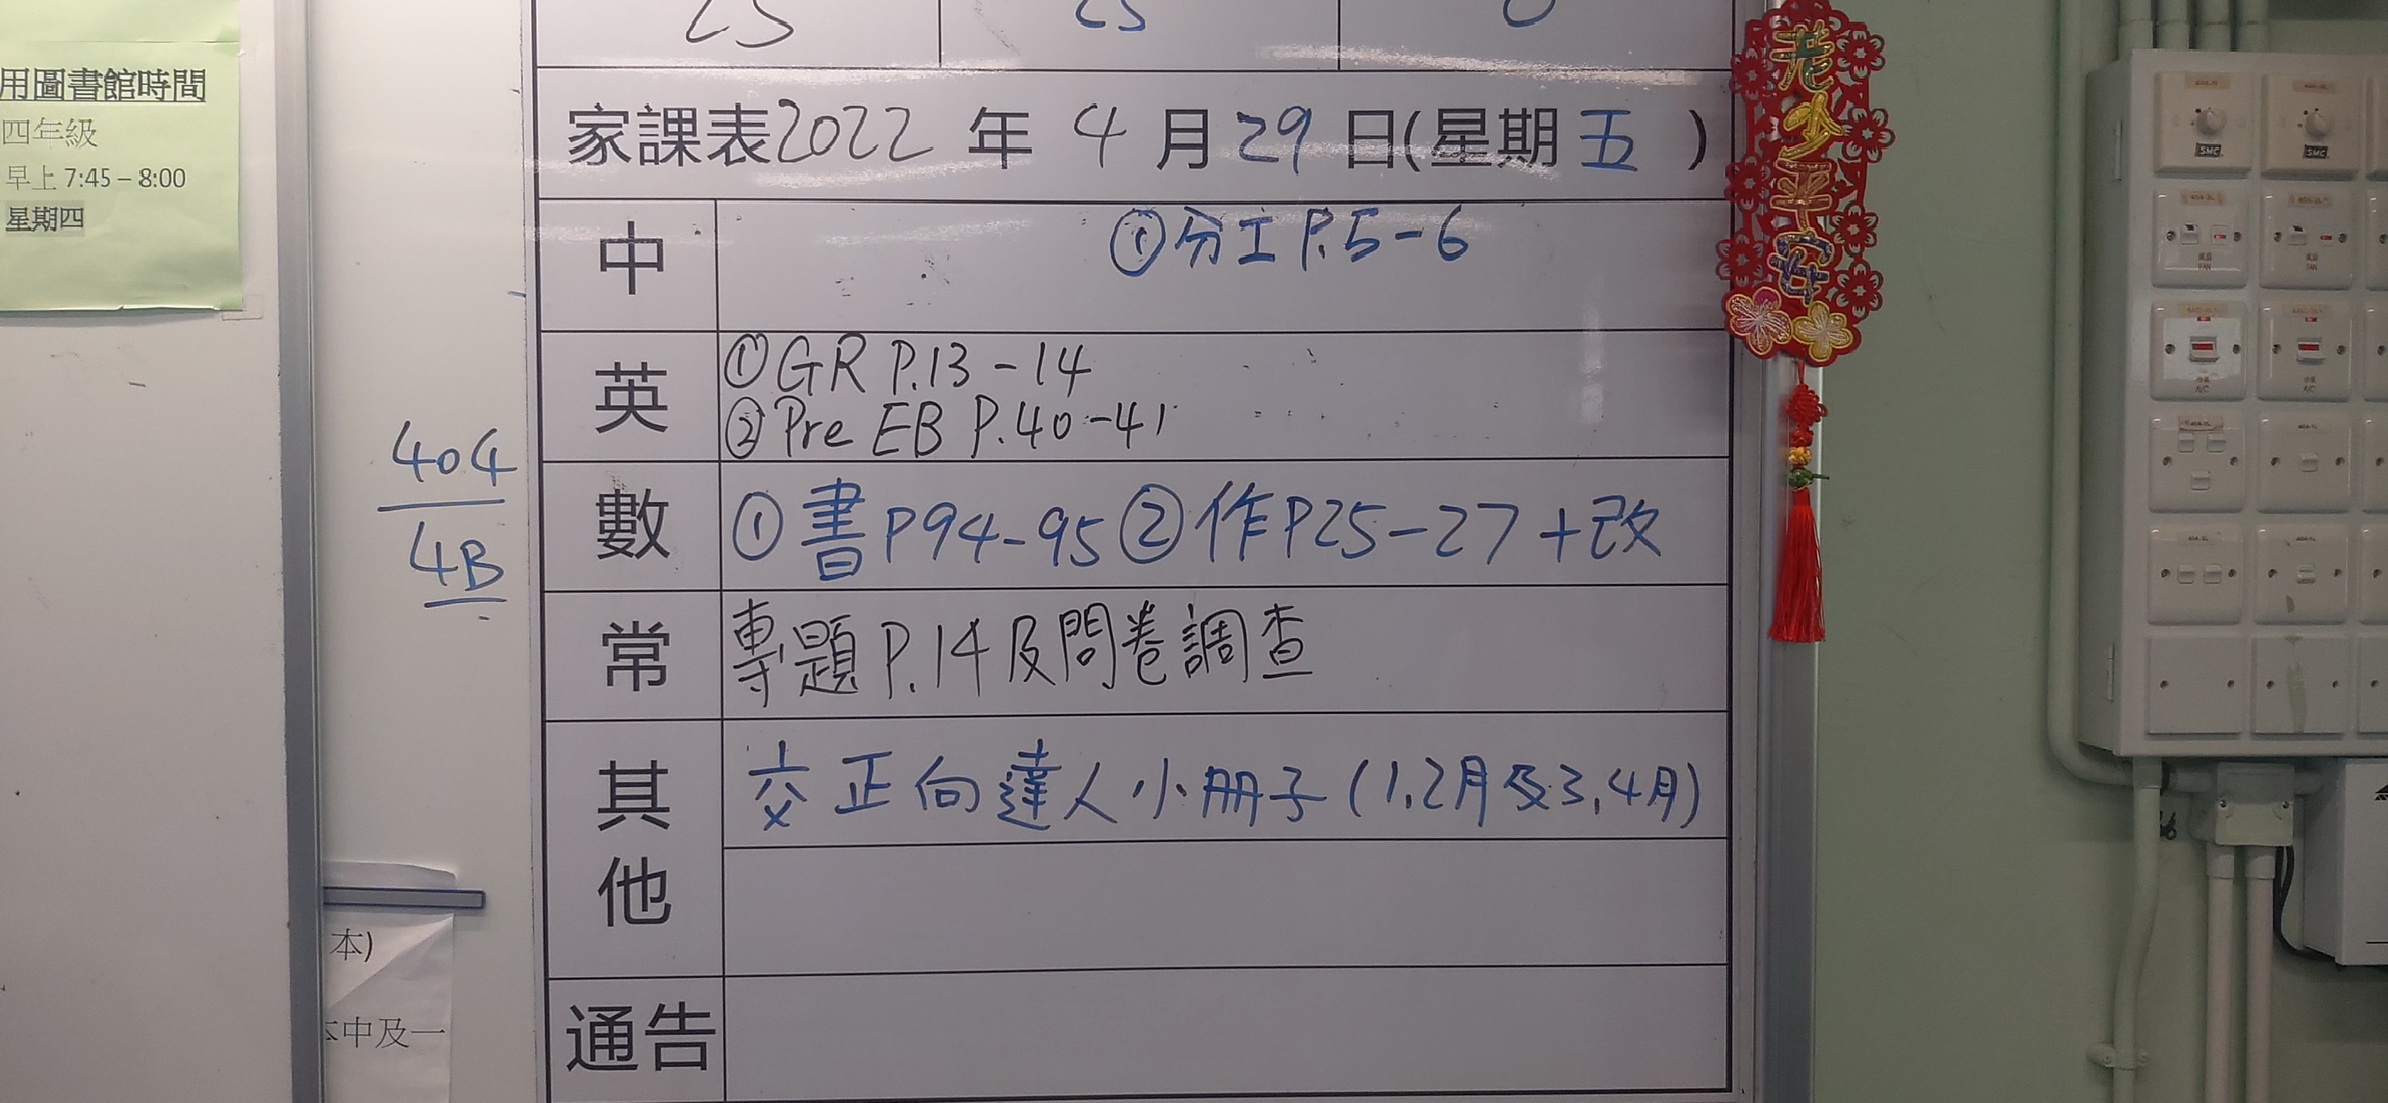 用圖書館時間
四年級
早上 7:45 – 8:00
星期四
25 25 0
家課表2022 年 4 月 29 日(星期 五 )
中 ①分工 P.5-6
英 ①GR P.13-14
②Pre EB P.40-41
404
4B
數 ①書P94-95②作P25-27+改
常 專題P.14及問卷調查
其他 交正向達人小册子(1,2月及3,4月)
通告
本)
本中及一
老少平安